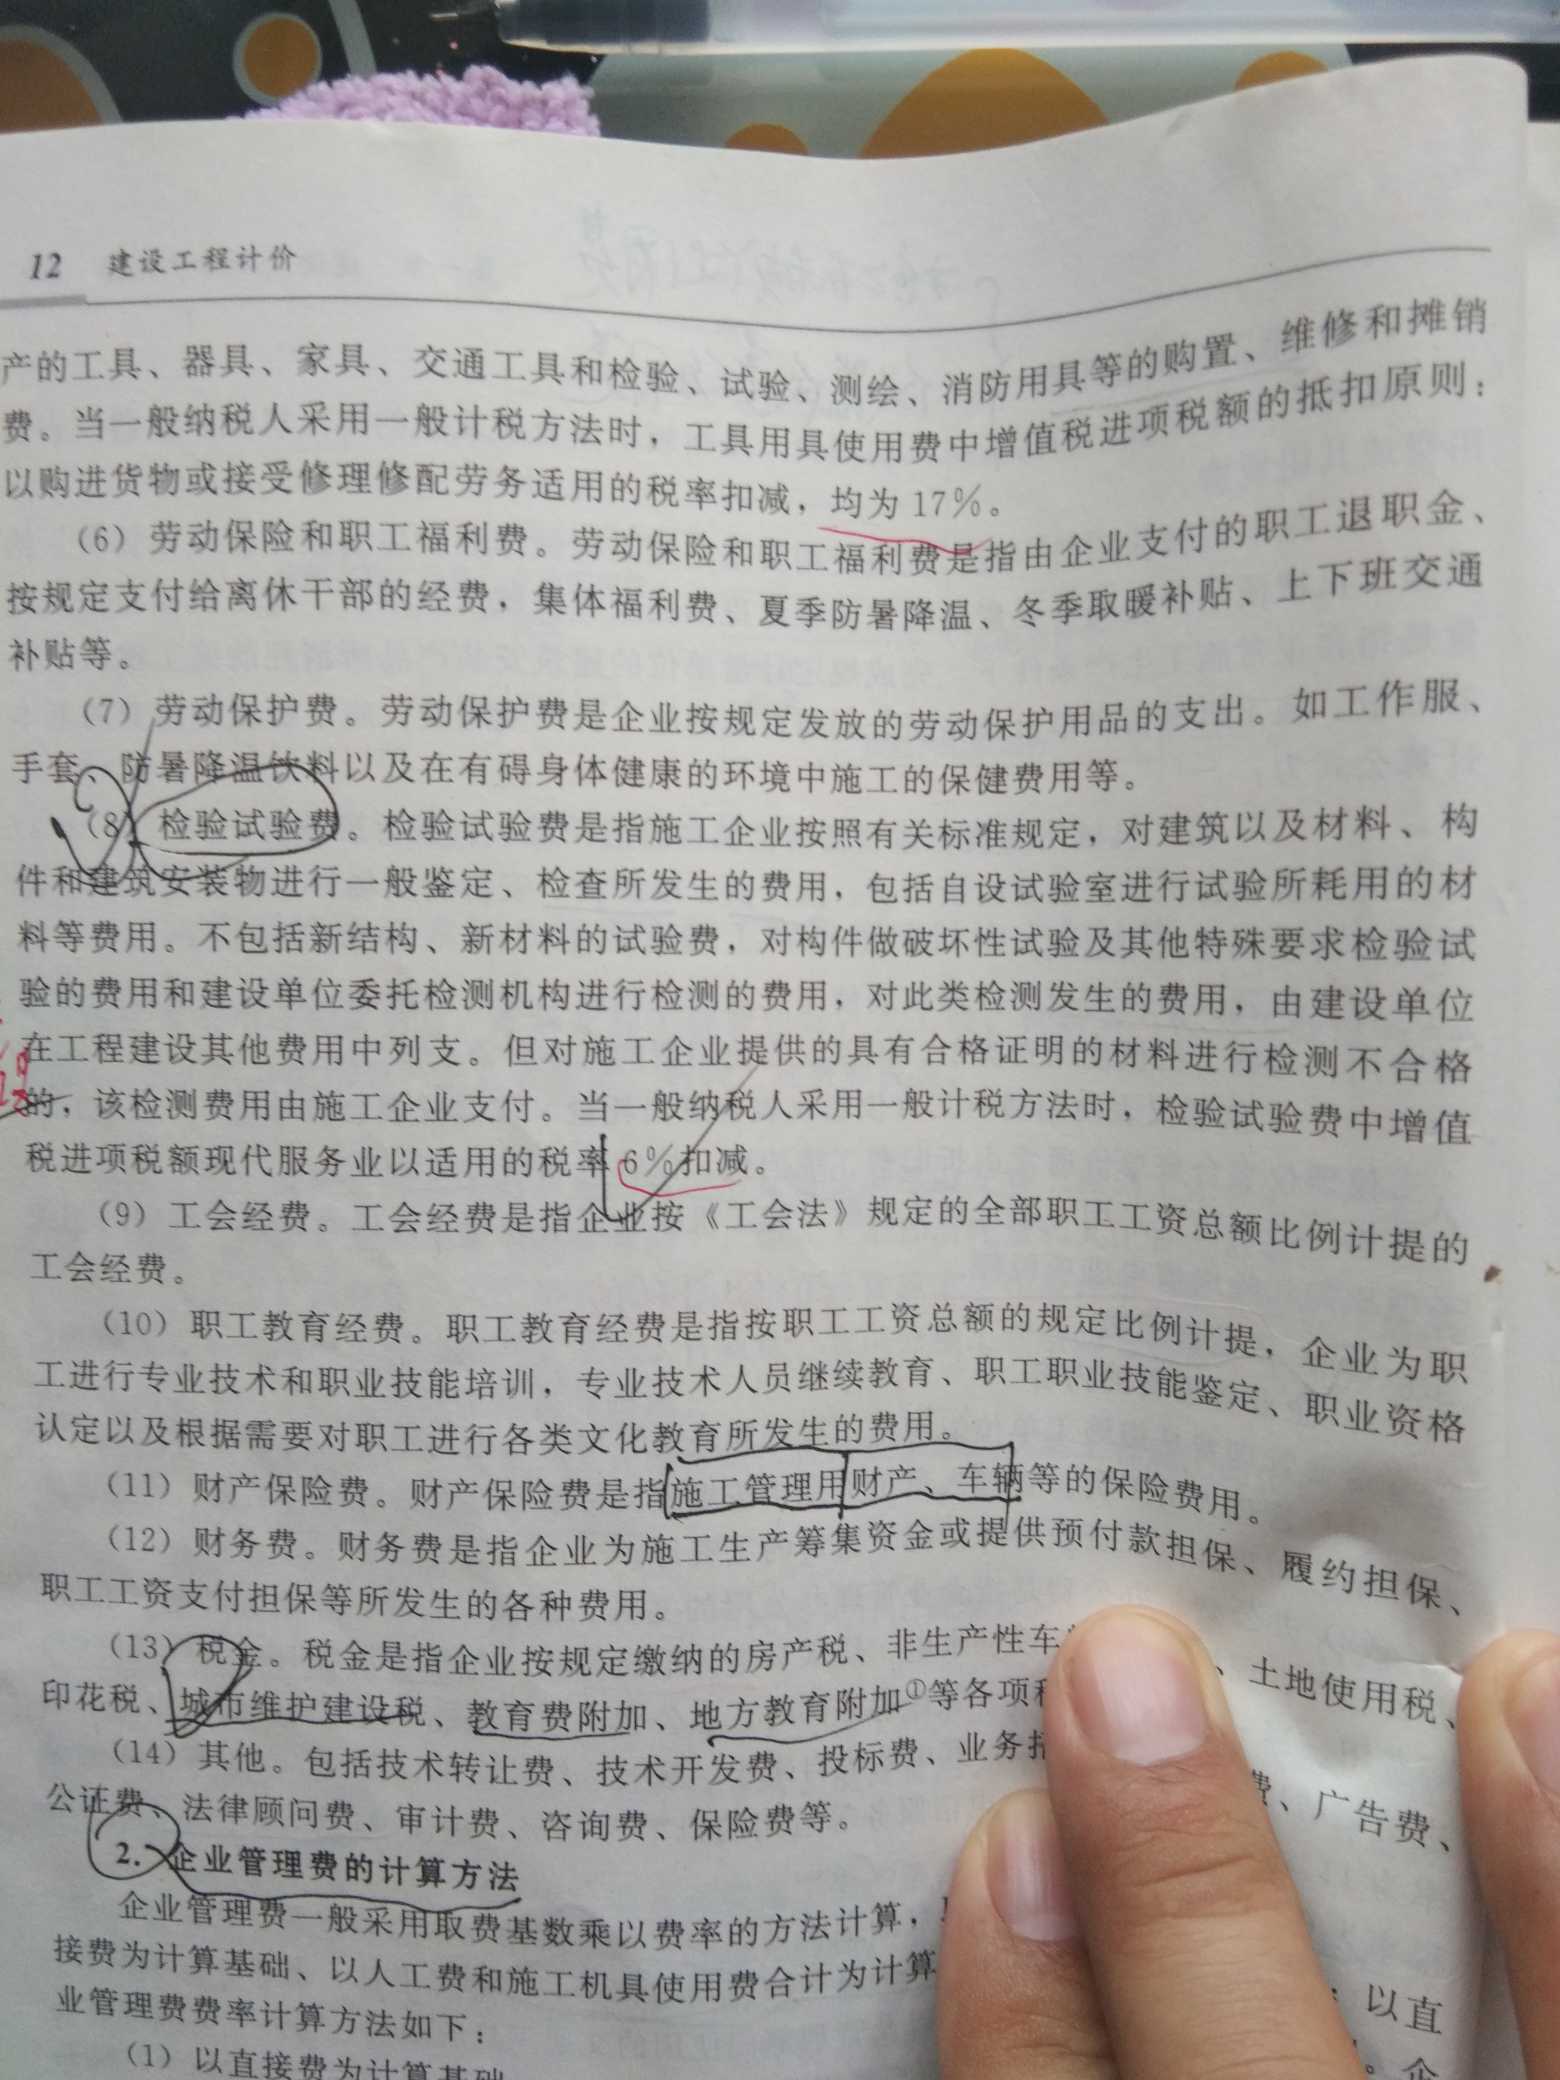 12 建设工程计价
产的工具、器具、家具、交通工具和检验、试验、测绘、消防用具等的购置、维修和摊销
费。当一般纳税人采用一般计税方法时，工具用具使用费中增值税进项税额的抵扣原则：
以购进货物或接受修理修配劳务适用的税率扣减，均为17%。
（6）劳动保险和职工福利费。劳动保险和职工福利费是指由企业支付的职工退职金、
按规定支付给离休干部的经费，集体福利费、夏季防暑降温、冬季取暖补贴、上下班交通
补贴等。
（7）劳动保护费。劳动保护费是企业按规定发放的劳动保护用品的支出。如工作服、
手套、防暑降温饮料以及在有碍身体健康的环境中施工的保健费用等。
（8）检验试验费。检验试验费是指施工企业按照有关标准规定，对建筑以及材料、构
件和建筑安装物进行一般鉴定、检查所发生的费用，包括自设试验室进行试验所耗用的材
料等费用。不包括新结构、新材料的试验费，对构件做破坏性试验及其他特殊要求检验试
验的费用和建设单位委托检测机构进行检测的费用，对此类检测发生的费用，由建设单位
在工程建设其他费用中列支。但对施工企业提供的具有合格证明的材料进行检测不合格
的，该检测费用由施工企业支付。当一般纳税人采用一般计税方法时，检验试验费中增值
税进项税额现代服务业以适用的税率6%扣减。
（9）工会经费。工会经费是指企业按《工会法》规定的全部职工工资总额比例计提的
工会经费。
（10）职工教育经费。职工教育经费是指按职工工资总额的规定比例计提，企业为职
工进行专业技术和职业技能培训，专业技术人员继续教育、职工职业技能鉴定、职业资格
认定以及根据需要对职工进行各类文化教育所发生的费用。
（11）财产保险费。财产保险费是指施工管理用财产、车辆等的保险费用。
（12）财务费。财务费是指企业为施工生产筹集资金或提供预付款担保、履约担保、
职工工资支付担保等所发生的各种费用。
（13）税金。税金是指企业按规定缴纳的房产税、非生产性车 、土地使用税、
印花税、城市维护建设税、教育费附加、地方教育附加①等各项
（14）其他。包括技术转让费、技术开发费、投标费、业务 费、广告费、
公证费、法律顾问费、审计费、咨询费、保险费等。
2. 企业管理费的计算方法
企业管理费一般采用取费基数乘以费率的方法计算， 以直
接费为计算基础、以人工费和施工机具使用费合计为计算 。企
业管理费费率计算方法如下：
（1）以直接费为计算基础